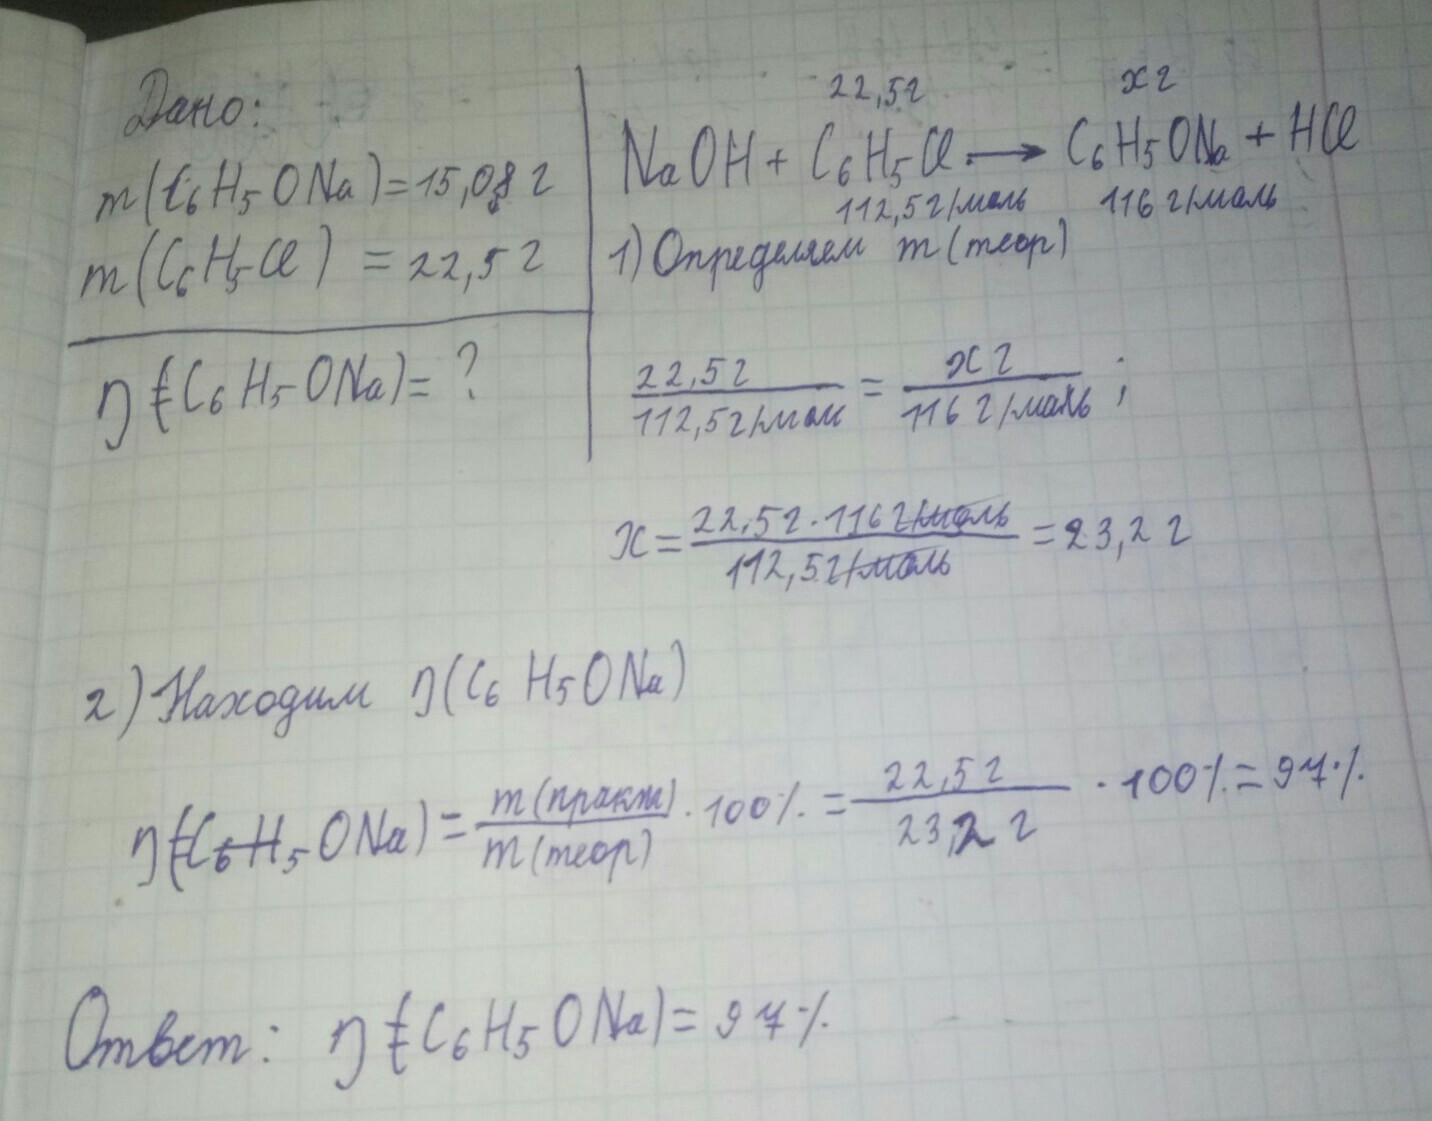 Дано:
m(C₆H₅ONa)=15,08 г
m(C₆H₅Cl) = 22,5 г
η(C₆H₅ONa)= ?
22,5г x г
NaOH + C₆H₅Cl → C₆H₅ONa + HCl
112,5г/моль 116 г/моль
1) Определяем m(теор)
22,5г / 112,5г/мол = x г / 116 г/моль ;
x = 22,5г · 116 г/моль / 112,5г/моль = 23,2 г
2) Находим η(C₆H₅ONa)
η(C₆H₅ONa) = m(практ) / m(теор) · 100% = 22,5 г / 23,2 г · 100% = 97%
Ответ: η(C₆H₅ONa)= 97%